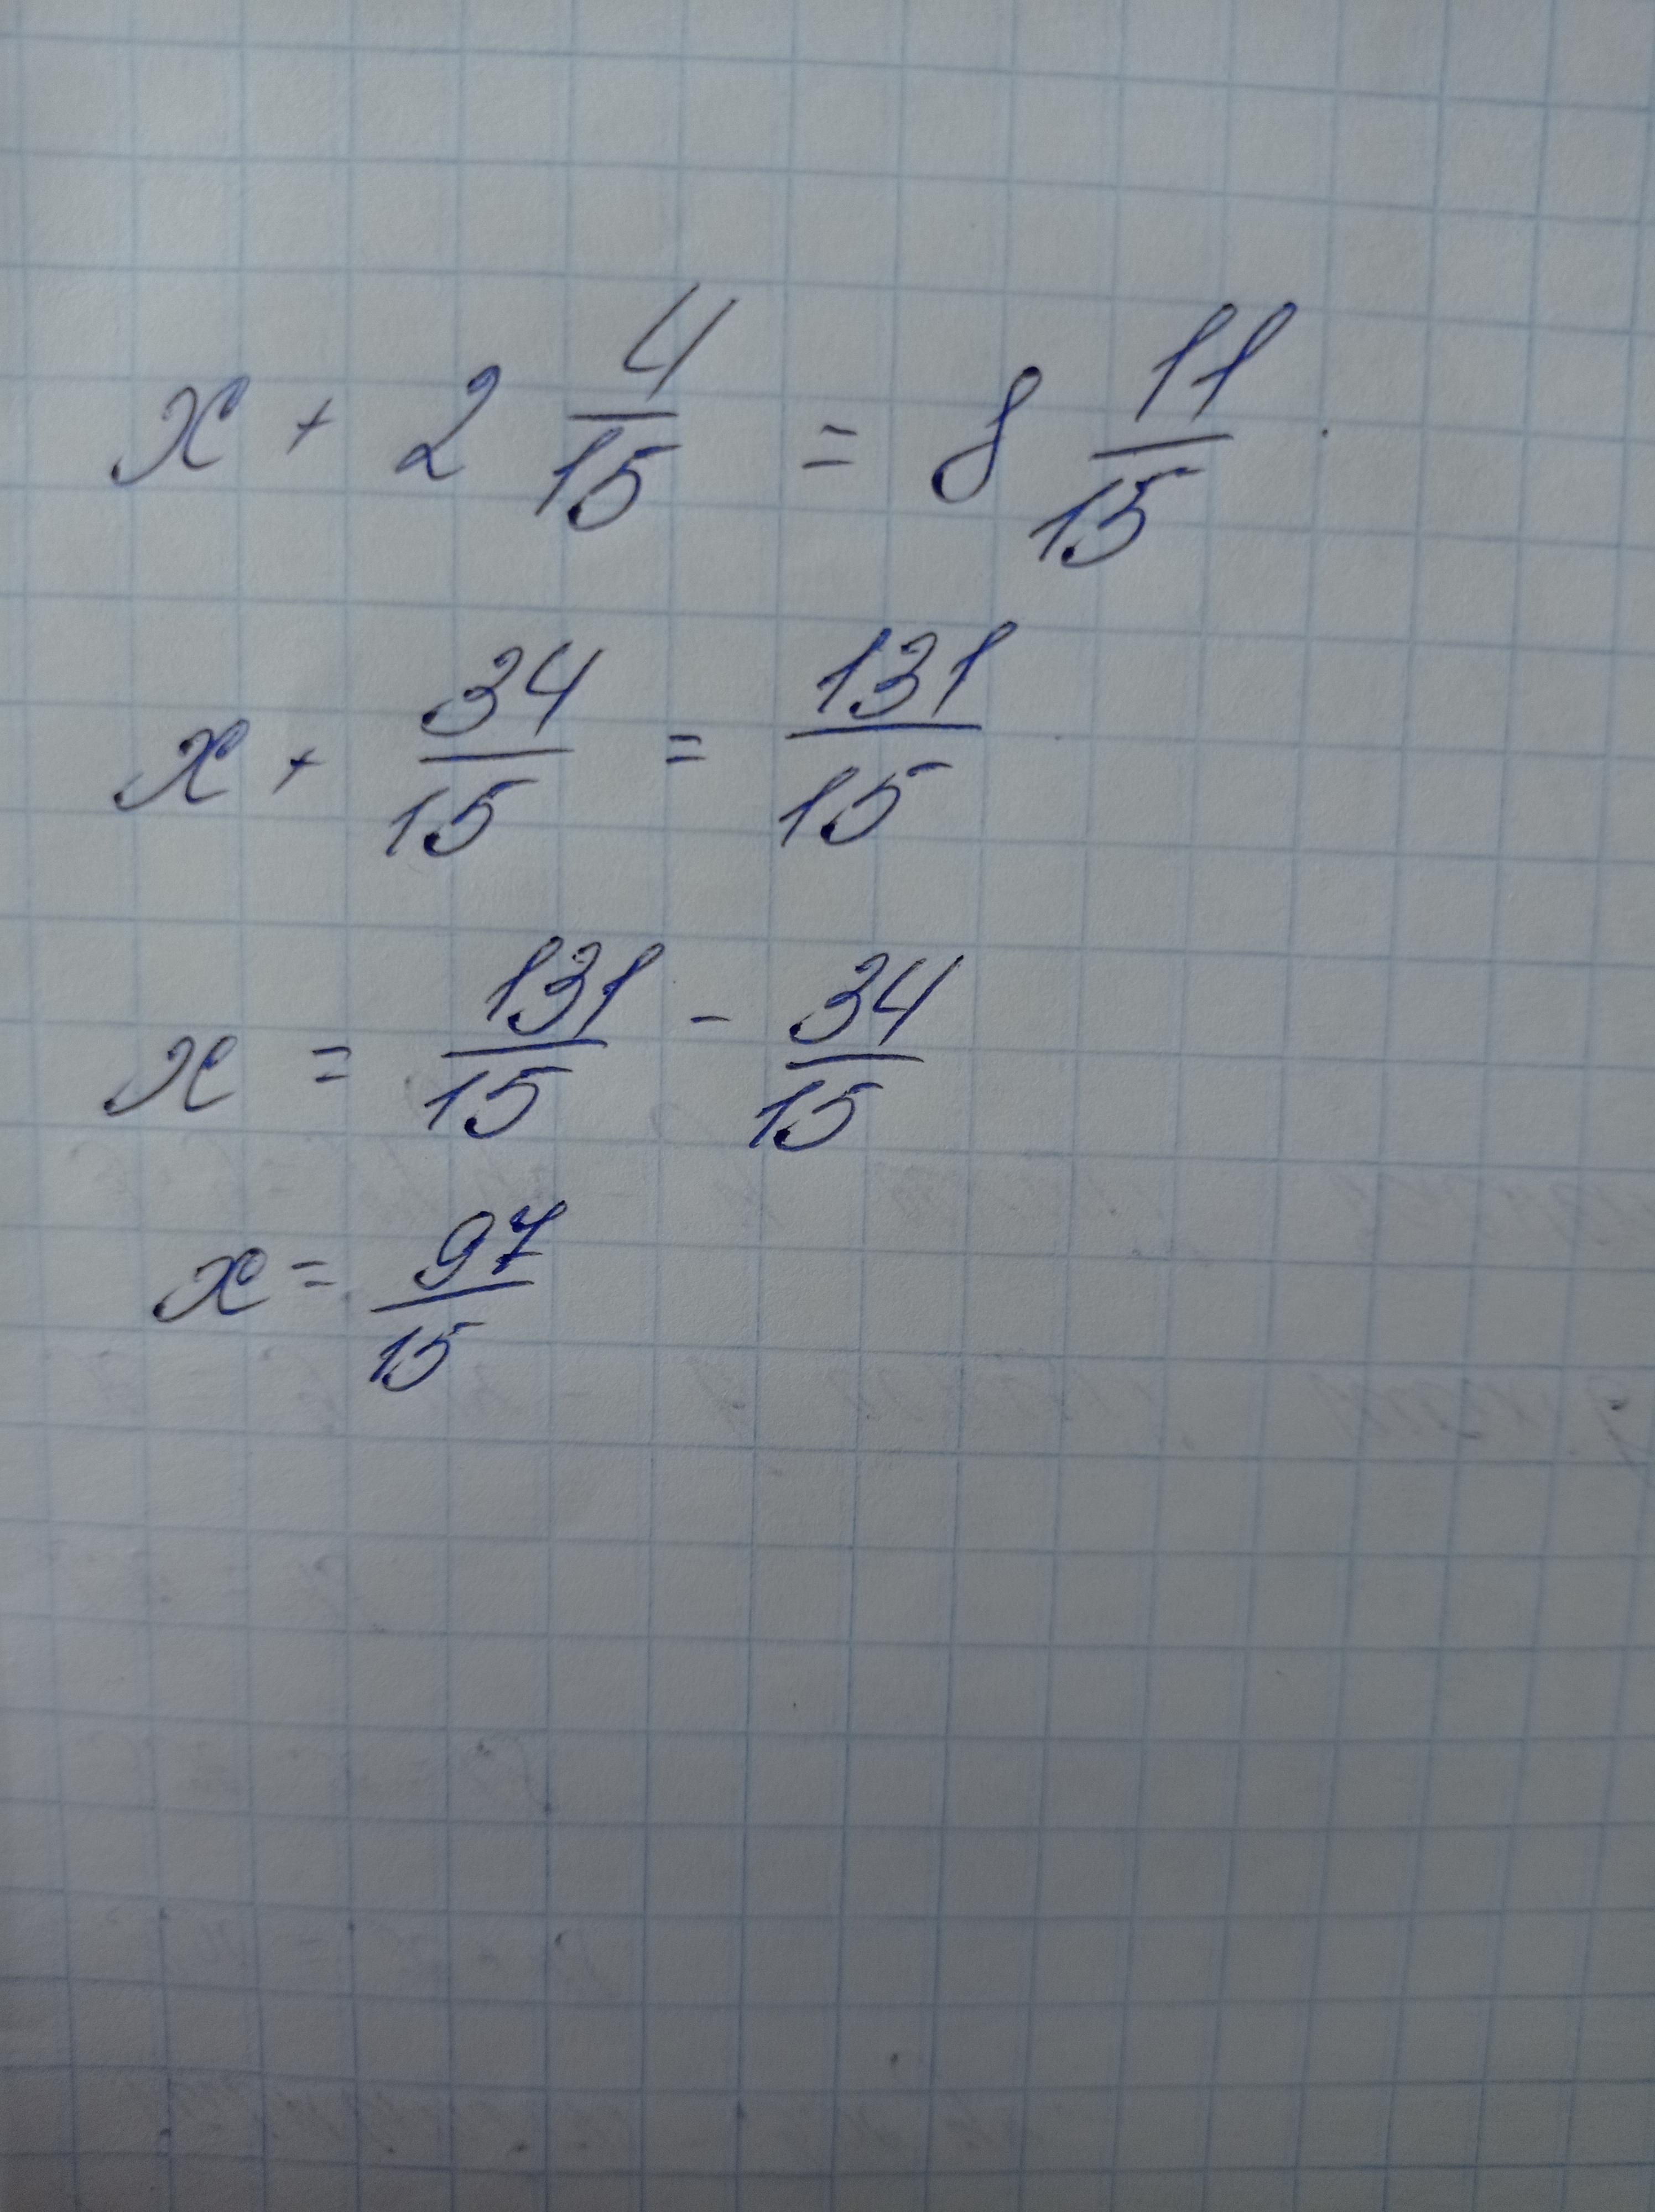 x + 2 4/15 = 8 11/15
x + 34/15 = 131/15
x = 131/15 - 34/15
x = 97/15